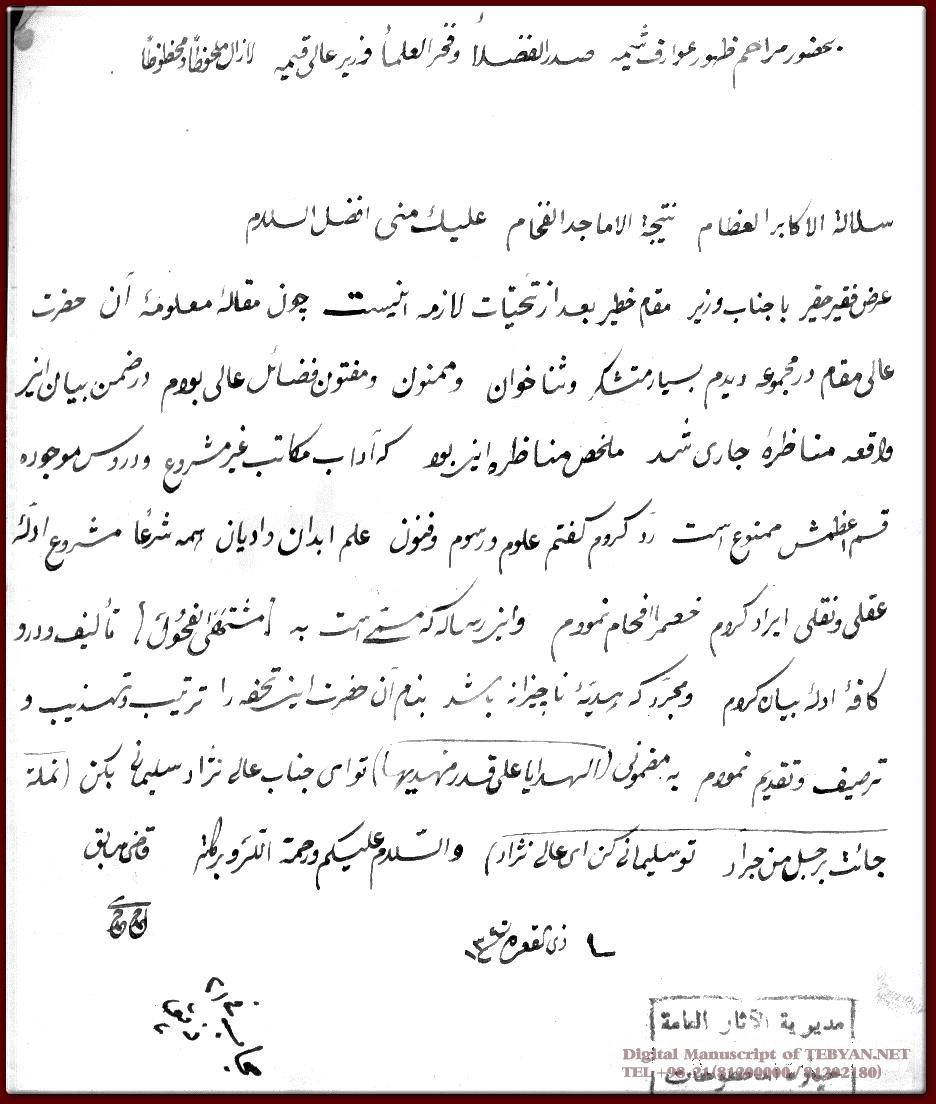 بحضور مراحم ظهور عوارف شیمه صدر الفضلاء وفخر العلماء وزیر عالی قیمه لازال ملحوظاً ومحظوظاً
سلالة الاكابر العظام نتیجة الاماجد الفخام علیك منی افضل السلام
عرض فقیر حقیر با جناب وزیر مقام خطیر بعد از تحیّات لازمه اینست چون مقالهٔ معلومهٔ آن حضرت
عالی مقام در مجموعه دیدم بسیار متشکر وثنا خوان وممنون ومفتون فضائل عالی بودم در ضمن بیان این
واقعه مناظرهٔ جاری شد ملخص مناظره این بود که آداب مکاتب غیر مشروع ودروس موجوده
قسم اعظمش ممنوع است رد کردم گفتم علوم ورسوم وفنون علم ابدان وادیان همه شرعا مشروع ادلهٔ
عقلی ونقلی ایراد کردم خصم را افحام نمودم واین رساله که مسمّی است به [مشتهی الفحول] تألیف ودرو
کافهٔ ادله بیان کردم ومجرّد که هدیّهٔ ناچیزانه باشد بنام آن حضرت این تحفه را ترتیب وتهذیب و
ترصیف وتقدیم نمودم به مضمونی (الهدایا علی قدر مهدیها) تو ای جناب عالی نژاد سلیمانی بکن (نملة
جائت برجل من جراد تو سلیمانی کن ای عالی نژاد) والسّلام علیکم ورحمة الله وبرکاته قاضی سابق
ذی القعده
مديرية الآثار العامة
Digital Manuscript of TEBYAN.NET
TEL +98-21(81200000 / 81202180)